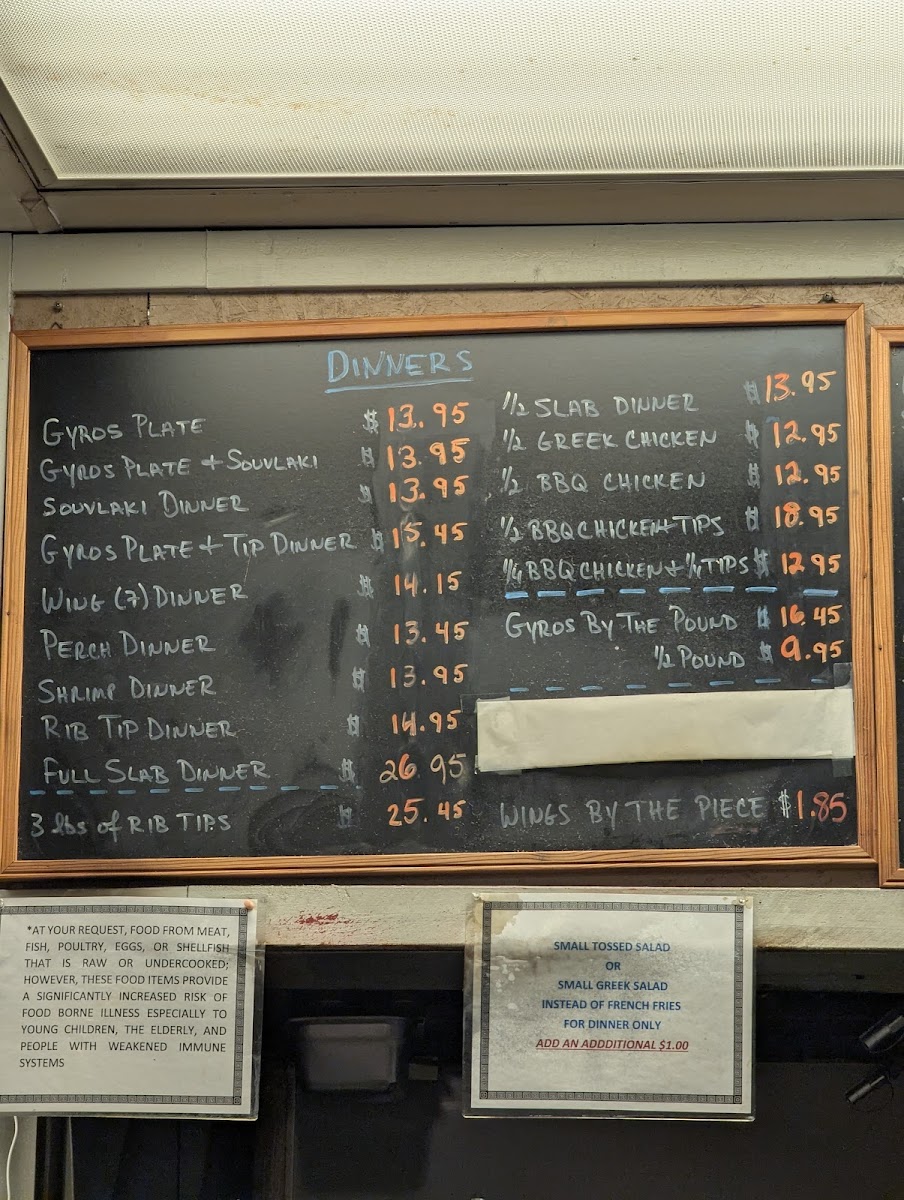 DINNERS
GYROS PLATE $ 13.95
GYROS PLATE + SOUVLAKI $ 13.95
SOUVLAKI DINNER $ 13.95
GYROS PLATE + TIP DINNER $ 15.45
WING (7) DINNER $ 14.15
PERCH DINNER $ 13.45
SHRIMP DINNER $ 13.95
RIB TIP DINNER $ 14.95
FULL SLAB DINNER $ 26.95
3 lbs of RIB TIPS $ 25.45
1/2 SLAB DINNER $ 13.95
1/2 GREEK CHICKEN $ 12.95
1/2 BBQ CHICKEN $ 12.95
1/2 BBQ CHICKEN + TIPS $ 18.95
1/4 BBQ CHICKEN + 1/4 TIPS $ 12.95
GYROS BY THE POUND $ 16.45
1/2 POUND $ 9.95
WINGS BY THE PIECE $1.85
*AT YOUR REQUEST, FOOD FROM MEAT,
FISH, POULTRY, EGGS, OR SHELLFISH
THAT IS RAW OR UNDERCOOKED;
HOWEVER, THESE FOOD ITEMS PROVIDE
A SIGNIFICANTLY INCREASED RISK OF
FOOD BORNE ILLNESS ESPECIALLY TO
YOUNG CHILDREN, THE ELDERLY, AND
PEOPLE WITH WEAKENED IMMUNE
SYSTEMS
SMALL TOSSED SALAD
OR
SMALL GREEK SALAD
INSTEAD OF FRENCH FRIES
FOR DINNER ONLY
ADD AN ADDDITIONAL $1.00